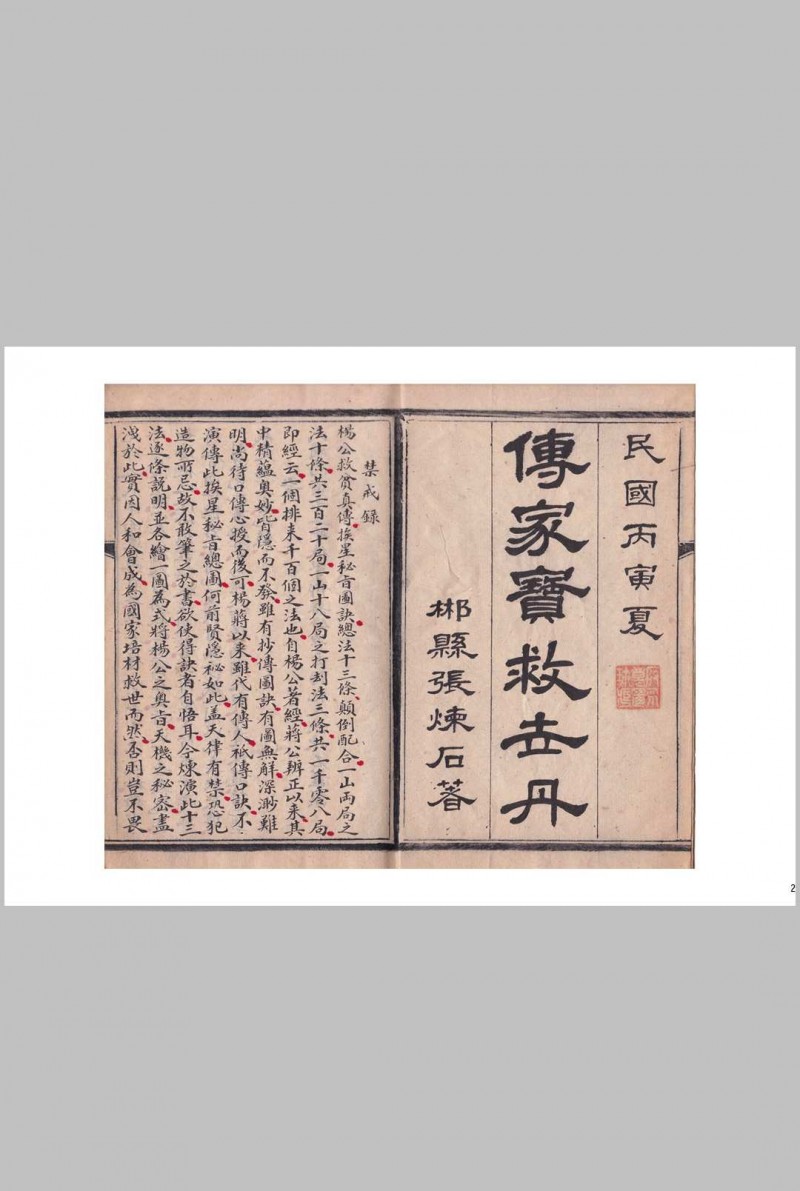 民國丙寅夏
傳家寶救世丹
郴縣張煉石著
禁戒錄
楊公救貧真傳挨星秘旨圖訣總法十三條顛倒配合一山両局之
法十條共三百二十局一山十八局之打刼法三條共一千零八局
即經云一個排来千百個之法也自楊公著經蔣公辨正以来其
中精蘊奥妙皆隱而不發雖有抄傳圖訣有圖無解深渺難
明尚待口傳心授而後可楊蔣以来雖代有傳人祗傳口訣不
演傳此挨星秘旨總圖何前賢隱秘如此盖天律有禁恐犯
造物所忌故不敢筆之於書欲使得訣者自悟耳今煉演此十三
法逐條説明並各繪一圖為式將楊公之奥旨天機之秘密盡
洩於此實因人和會成為國家培材救世而然否則豈不畏
2